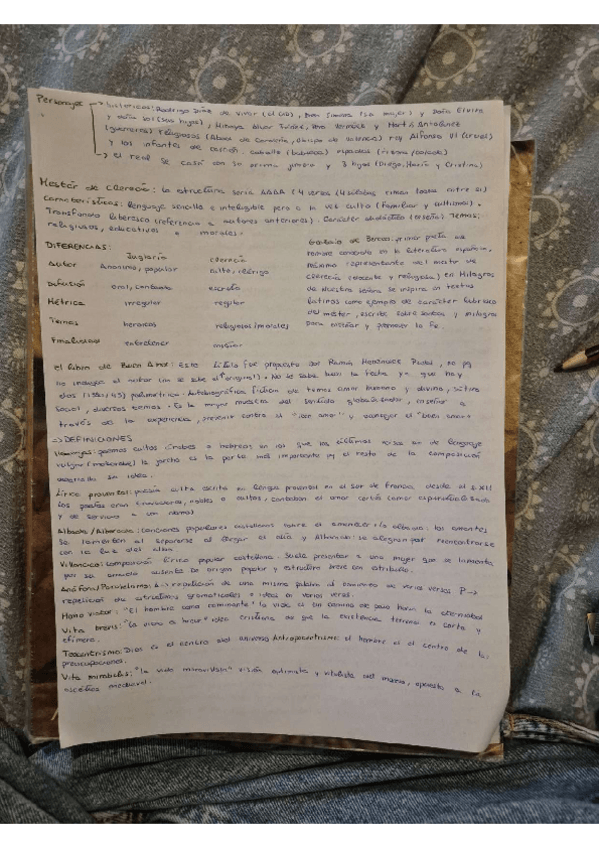 Personajes → históricos: Rodrigo Díaz de Vivar (el Cid), Don Jimena (su mujer) y Doña Elvira
y doña Sol (sus hijas), Minaya Álvar Fáñez, Pero Vermúdez y Martín Antolínez
(guerreros) religiosos (Abad de Cardeña, Obispo de Valencia) rey Alfonso VI (cruel)
y los infantes de Carrión. caballo (babieca) espadas (tizona/colada)
→ el real se casó con su prima Jimena y 3 hijos (Diego, María y Cristina)
Mester de Clerecía: la estructura sería AAAA (4 versos (4 sílabas riman todas entre sí)
Características: lenguaje sencillo e inteligible pero a la vez culto (familiar y cultismos).
Trasfondo libresco (referencia a autores anteriores). Carácter didáctico (enseña) Temas:
religiosos, educativos o morales.
DIFERENCIAS:
Juglaría clerecía
Autor Anónimo, popular culto, clérigo
Difusión oral, cantada escrito
Métrica irregular regular
Temas heroicos religiosos/morales
Finalidad entretener enseñar
Gonzalo de Berceo: primer poeta de
nombre conocido en la literatura española,
máximo representante del mester de
clerecía (docente y religioso) en Milagros
de Nuestra Señora se inspira en textos
latinos como ejemplo de carácter libresco
del mester, escribe sobre santos y milagros
para enseñar y promover la fe.
el Libro de Buen Amor: este título fue propuesto por Ramón Menéndez Pidal, no pq
lo indique el autor (no se sabe el original). No se sabe bien la fecha ya que hay
dos (1330/43) polimétrico. Autobiográfica
social, diversos temas. Es la mejor muestra del sentido globalizador, enseña a
través de la experiencia, prevenir contra el "loco amor" y aconsejar el "buen amor"
=> DEFINICIONES
Moaxajas: poemas cultos árabes o hebreos en los que los últimos versos en lenguaje
vulgar (mozárabe) la jarcha es la parte más importante pq el resto de la composición
Lírica provenzal: poesía culta escrita en lengua provenzal en el sur de Francia, desde el S.XII
los poetas eran trovadores, nobles o cultos, cantaban el amor cortés
y de servicio a un
Albada/Alborada: canciones populares castellanas sobre el amanecer r/o albada: los amantes
se lamentan al separarse al llegar el día y Alborada: se alegran por reencontrarse
con la luz del alba.
Villancico: composición lírica popular castellana. Suele presentar a una mujer que se lamenta
por su amado ausente de origen popular y estructura breve con estribillo.
Anáfora/Paralelismo: A → repetición de una misma palabra al comienzo de varios versos P →
repetición de estructuras gramaticales o ideas en varios versos.
Homo viator: "El hombre como caminante" la vida es un camino de paso hacia la eternidad
Vita brevis: "La vida es breve" idea cristiana de que la existencia terrena es corta y
efímera.
Teocentrismo: Dios es el centro del universo Antropocentrismo: el hombre es el centro de la
preocupación.
Vita mirabilis: "la vida maravillosa" visión optimista y vitalista del mundo, opuesta a la
ascética medieval.